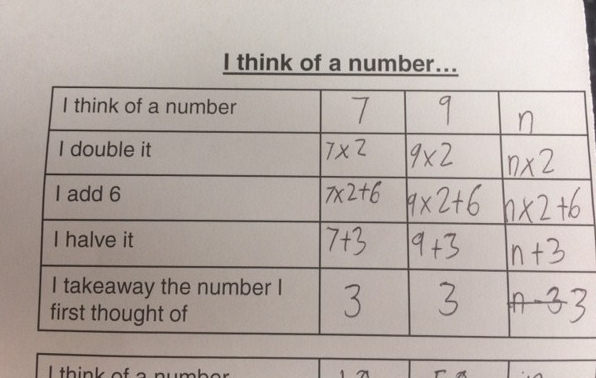 I think of a number...
I think of a number 7 9 n
I double it 7x2 9x2 nx2
I add 6 7x2+6 9x2+6 nx2+6
I halve it 7+3 9+3 n+3
I takeaway the number I
first thought of 3 3 3
I think of a number